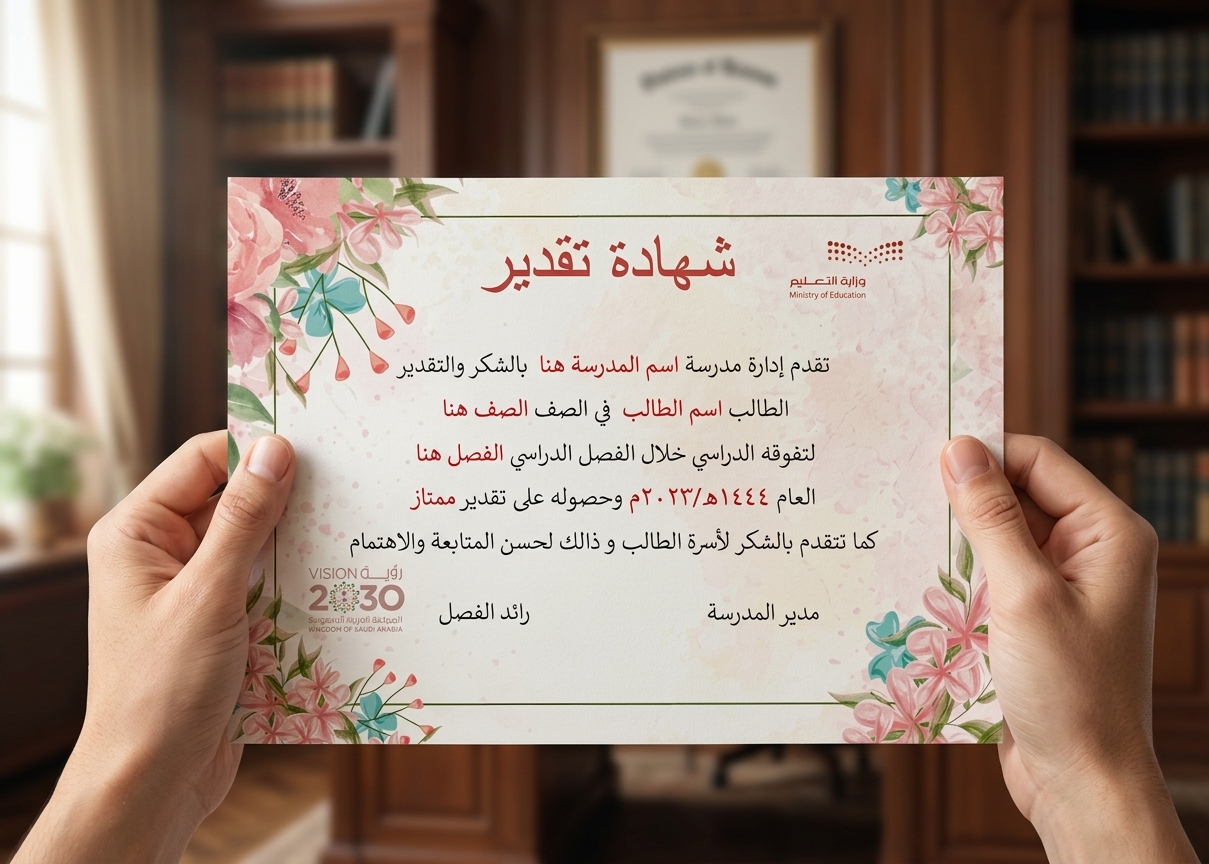 شهادة تقدير
وزارة التعـــليم
Ministry of Education
تقدم إدارة مدرسة اسم المدرسة هنا بالشكر والتقدير
الطالب اسم الطالب في الصف الصف هنا
لتفوقه الدراسي خلال الفصل الدراسي الفصل هنا
العام ١٤٤٤هـ/٢٠٢٣م وحصوله على تقدير ممتاز
كما تتقدم بالشكر لأسرة الطالب و ذالك لحسن المتابعة والاهتمام
VISION رؤيـــة
2030
OF SAUDI ARABIA
مدير المدرسة
رائد الفصل